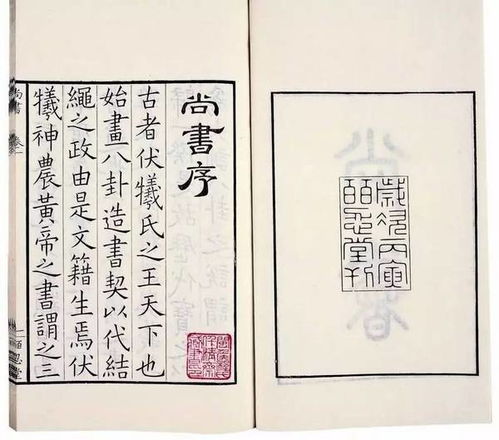 歲次丙寅
皕忍堂刊
尚書序
古者伏犧氏之王天下也
始畫八卦造書契以代結
繩之政由是文籍生焉伏
犧神農黃帝之書謂之三
尚書 卷一
一 皕忍堂